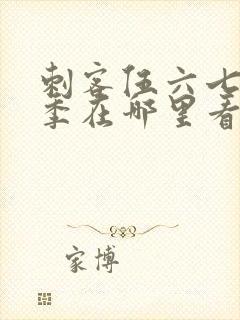 刺客伍六七
季在哪里看
家博